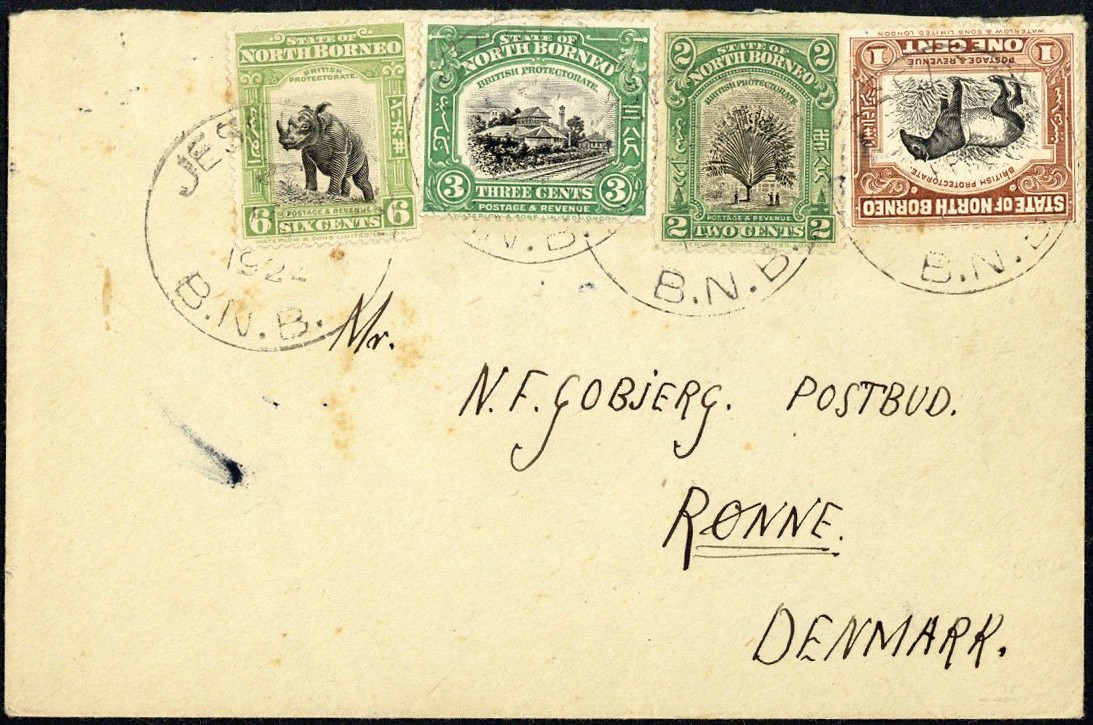 STATE OF
NORTH BORNEO
BRITISH
PROTECTORATE.
6 POSTAGE & REVENUE 6
SIX CENTS
WATERLOW & SONS LIMITED
STATE OF
NORTH BORNEO
BRITISH PROTECTORATE.
3 THREE CENTS 3
POSTAGE & REVENUE
WATERLOW & SONS LIMITED LONDON
2 STATE OF 2
NORTH BORNEO
BRITISH PROTECTORATE
POSTAGE & REVENUE
2 TWO CENTS 2
WATERLOW & SONS LIMITED LONDON
STATE OF NORTH BORNEO
BRITISH PROTECTORATE.
1 POSTAGE & REVENUE 1
ONE CENT
WATERLOW & SONS LIMITED LONDON
B.N.B.
N.B.
B.N.B.
B.N.B.
Mr.
N.F. GOBJERG. POSTBUD.
RØNNE.
DENMARK.